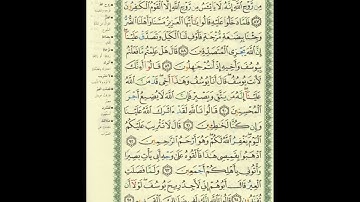 مِن رَّوْحِ ٱللَّهِ إِنَّهُۥ لَا يَا۟يْـَٔسُ مِن رَّوْحِ ٱللَّهِ إِلَّا ٱلْقَوْمُ ٱلْكَٰفِرُونَ
٨٧ فَلَمَّا دَخَلُوا۟ عَلَيْهِ قَالُوا۟ يَٰٓأَيُّهَا ٱلْعَزِيزُ مَسَّنَا وَأَهْلَنَا ٱلضُّرُّ
وَجِئْنَا بِبِضَٰعَةٍ مُّزْجَىٰةٍ فَأَوْفِ لَنَا ٱلْكَيْلَ وَتَصَدَّقْ عَلَيْنَآ
إِنَّ ٱللَّهَ يَجْزِى ٱلْمُتَصَدِّقِينَ ٨٨ قَالَ هَلْ عَلِمْتُم مَّا فَعَلْتُم
بِيُوسُفَ وَأَخِيهِ إِذْ أَنتُمْ جَٰهِلُونَ ٨٩ قَالُوٓا۟ أَءِنَّكَ
لَأَنتَ يُوسُفُ قَالَ أَنَا۠ يُوسُفُ وَهَٰذَآ أَخِى قَدْ مَنَّ ٱللَّهُ
عَلَيْنَآ إِنَّهُۥ مَن يَتَّقِ وَيَصْبِرْ فَإِنَّ ٱللَّهَ لَا يُضِيعُ أَجْرَ
ٱلْمُحْسِنِينَ ٩٠ قَالُوا۟ تَٱللَّهِ لَقَدْ ءَاثَرَكَ ٱللَّهُ عَلَيْنَا
وَإِن كُنَّا لَخَٰطِـِٔينَ ٩١ قَالَ لَا تَثْرِيبَ عَلَيْكُمُ
ٱلْيَوْمَ يَغْفِرُ ٱللَّهُ لَكُمْ وَهُوَ أَرْحَمُ ٱلرَّٰحِمِينَ ٩٢
ٱذْهَبُوا۟ بِقَمِيصِى هَٰذَا فَأَلْقُوهُ عَلَىٰ وَجْهِ أَبِى يَأْتِ بَصِيرًا
وَأْتُونِى بِأَهْلِكُمْ أَجْمَعِينَ ٩٣ وَلَمَّا فَصَلَتِ
ٱلْعِيرُ قَالَ أَبُوهُمْ إِنِّى لَأَجِدُ رِيحَ يُوسُفَ لَوْلَآ أَن